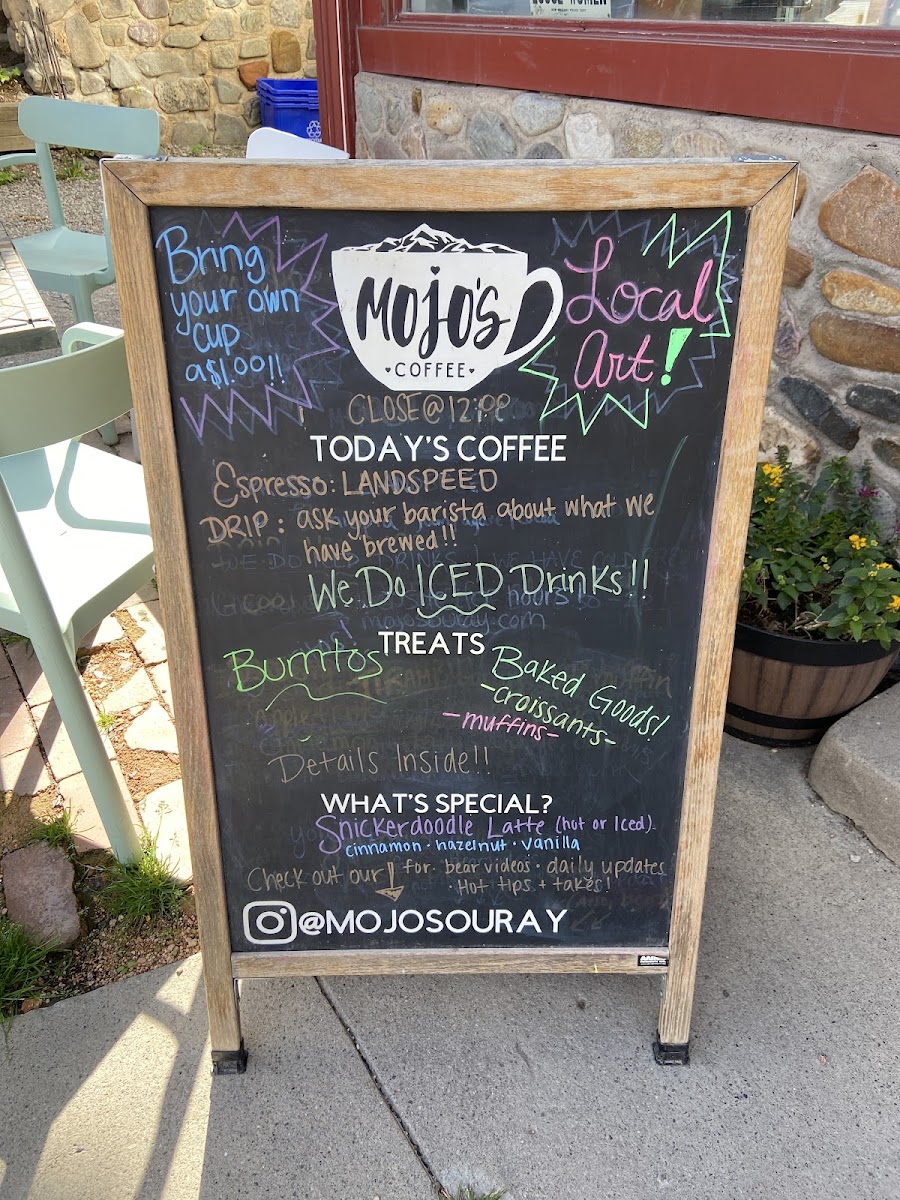 Bring
your own
cup
a$1.00!!
MOJO'S
COFFEE
Local
Art!
CLOSE@12:00
TODAY'S COFFEE
Espresso: LANDSPEED
DRIP: ask your barista about what we
have brewed!!
We Do ICED Drinks!!
mojosouray.com
TREATS
Burritos
Baked Goods!
-croissants-
-muffins-
Details Inside!!
WHAT'S SPECIAL?
Snickerdoodle Latte (hot or Iced)
cinnamon · hazelnut · vanilla
Check out our for · bear videos · daily updates
· Hot tips + takes!
@MOJOSOURAY